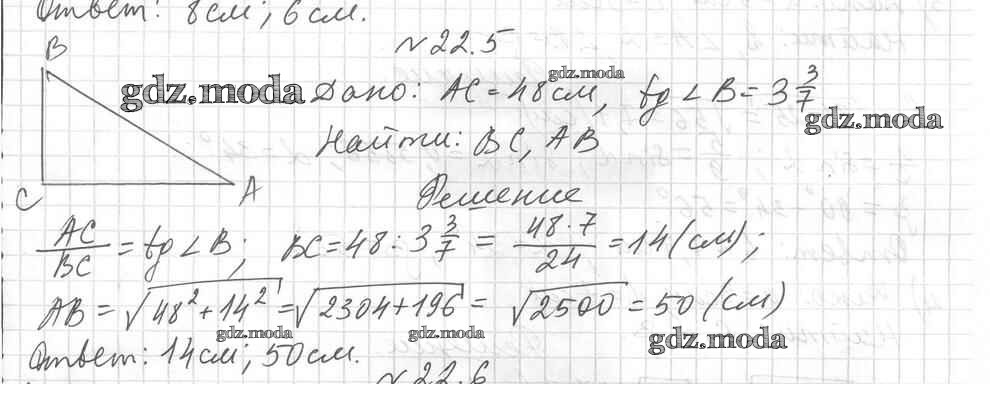 Ответ: 8 см; 6 см.
N 22.5
B
gdz.moda
Дано: AC = 48 см, tg ∠B = 3 3/7
gdz.moda
gdz.moda
Найти: BC, AB
C
A
Решение
AC/BC = tg ∠B; BC = 48 : 3 3/7 = 48·7/24 = 14 (см);
AB = √48² + 14² = √2304 + 196 = √2500 = 50 (см)
gdz.moda gdz.moda gdz.moda
Ответ: 14 см; 50 см.
N 22.6